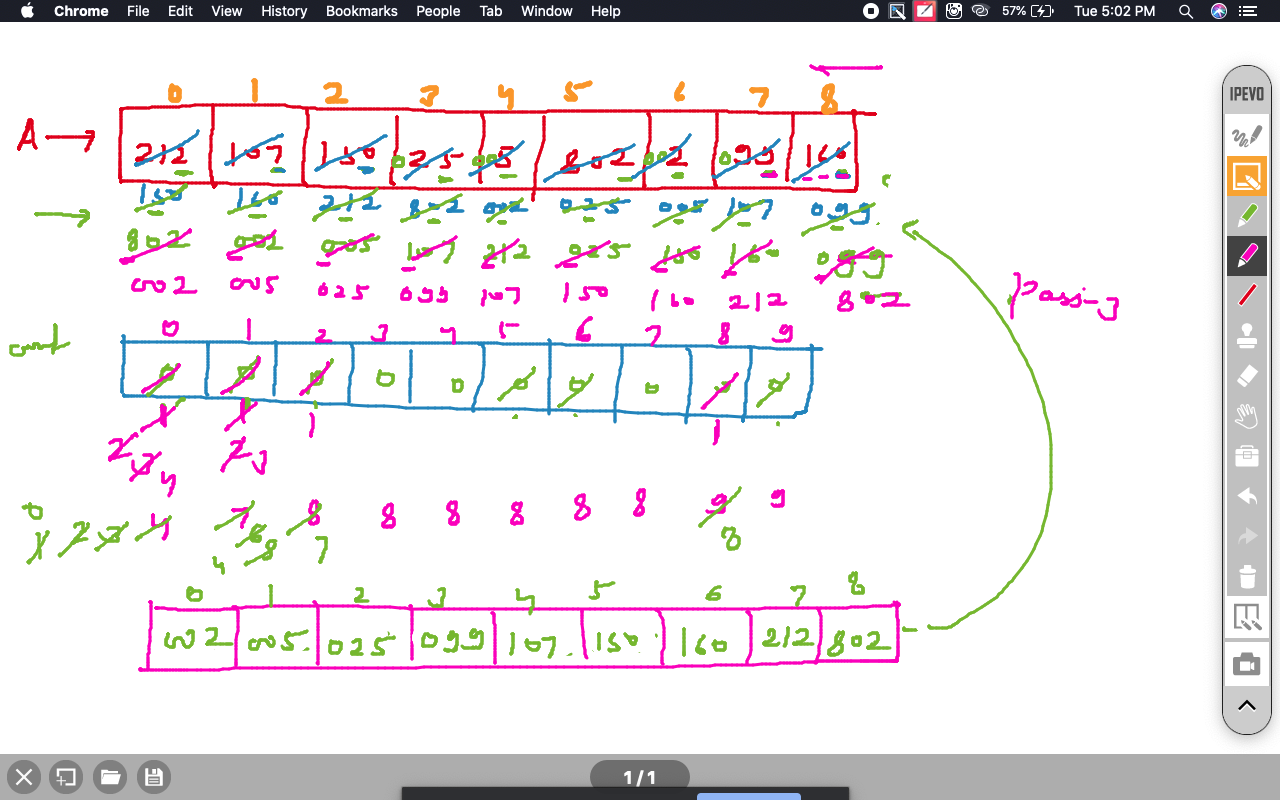 Chrome File Edit View History Bookmarks People Tab Window Help 57% Tue 5:02 PM
IPEVO
0 1 2 3 4 5 6 7 8
A → 212 107 150 025 005 802 002 099 160
150 160 212 802 002 025 005 107 099
802 002 005 107 212 025 150 160 099
002 005 025 099 107 150 160 212 802
Passing
0 1 2 3 4 5 6 7 8 9
count 0 0 0 0 0 0 0 0 0 0
1 1 1 1
2 3 4 2 3
0 1 2 3 4 7 8 8 8 8 8 8 9 9
4 8 6 7 8
0 1 2 3 4 5 6 7 8
002 005 025 099 107 150 160 212 802
1/1